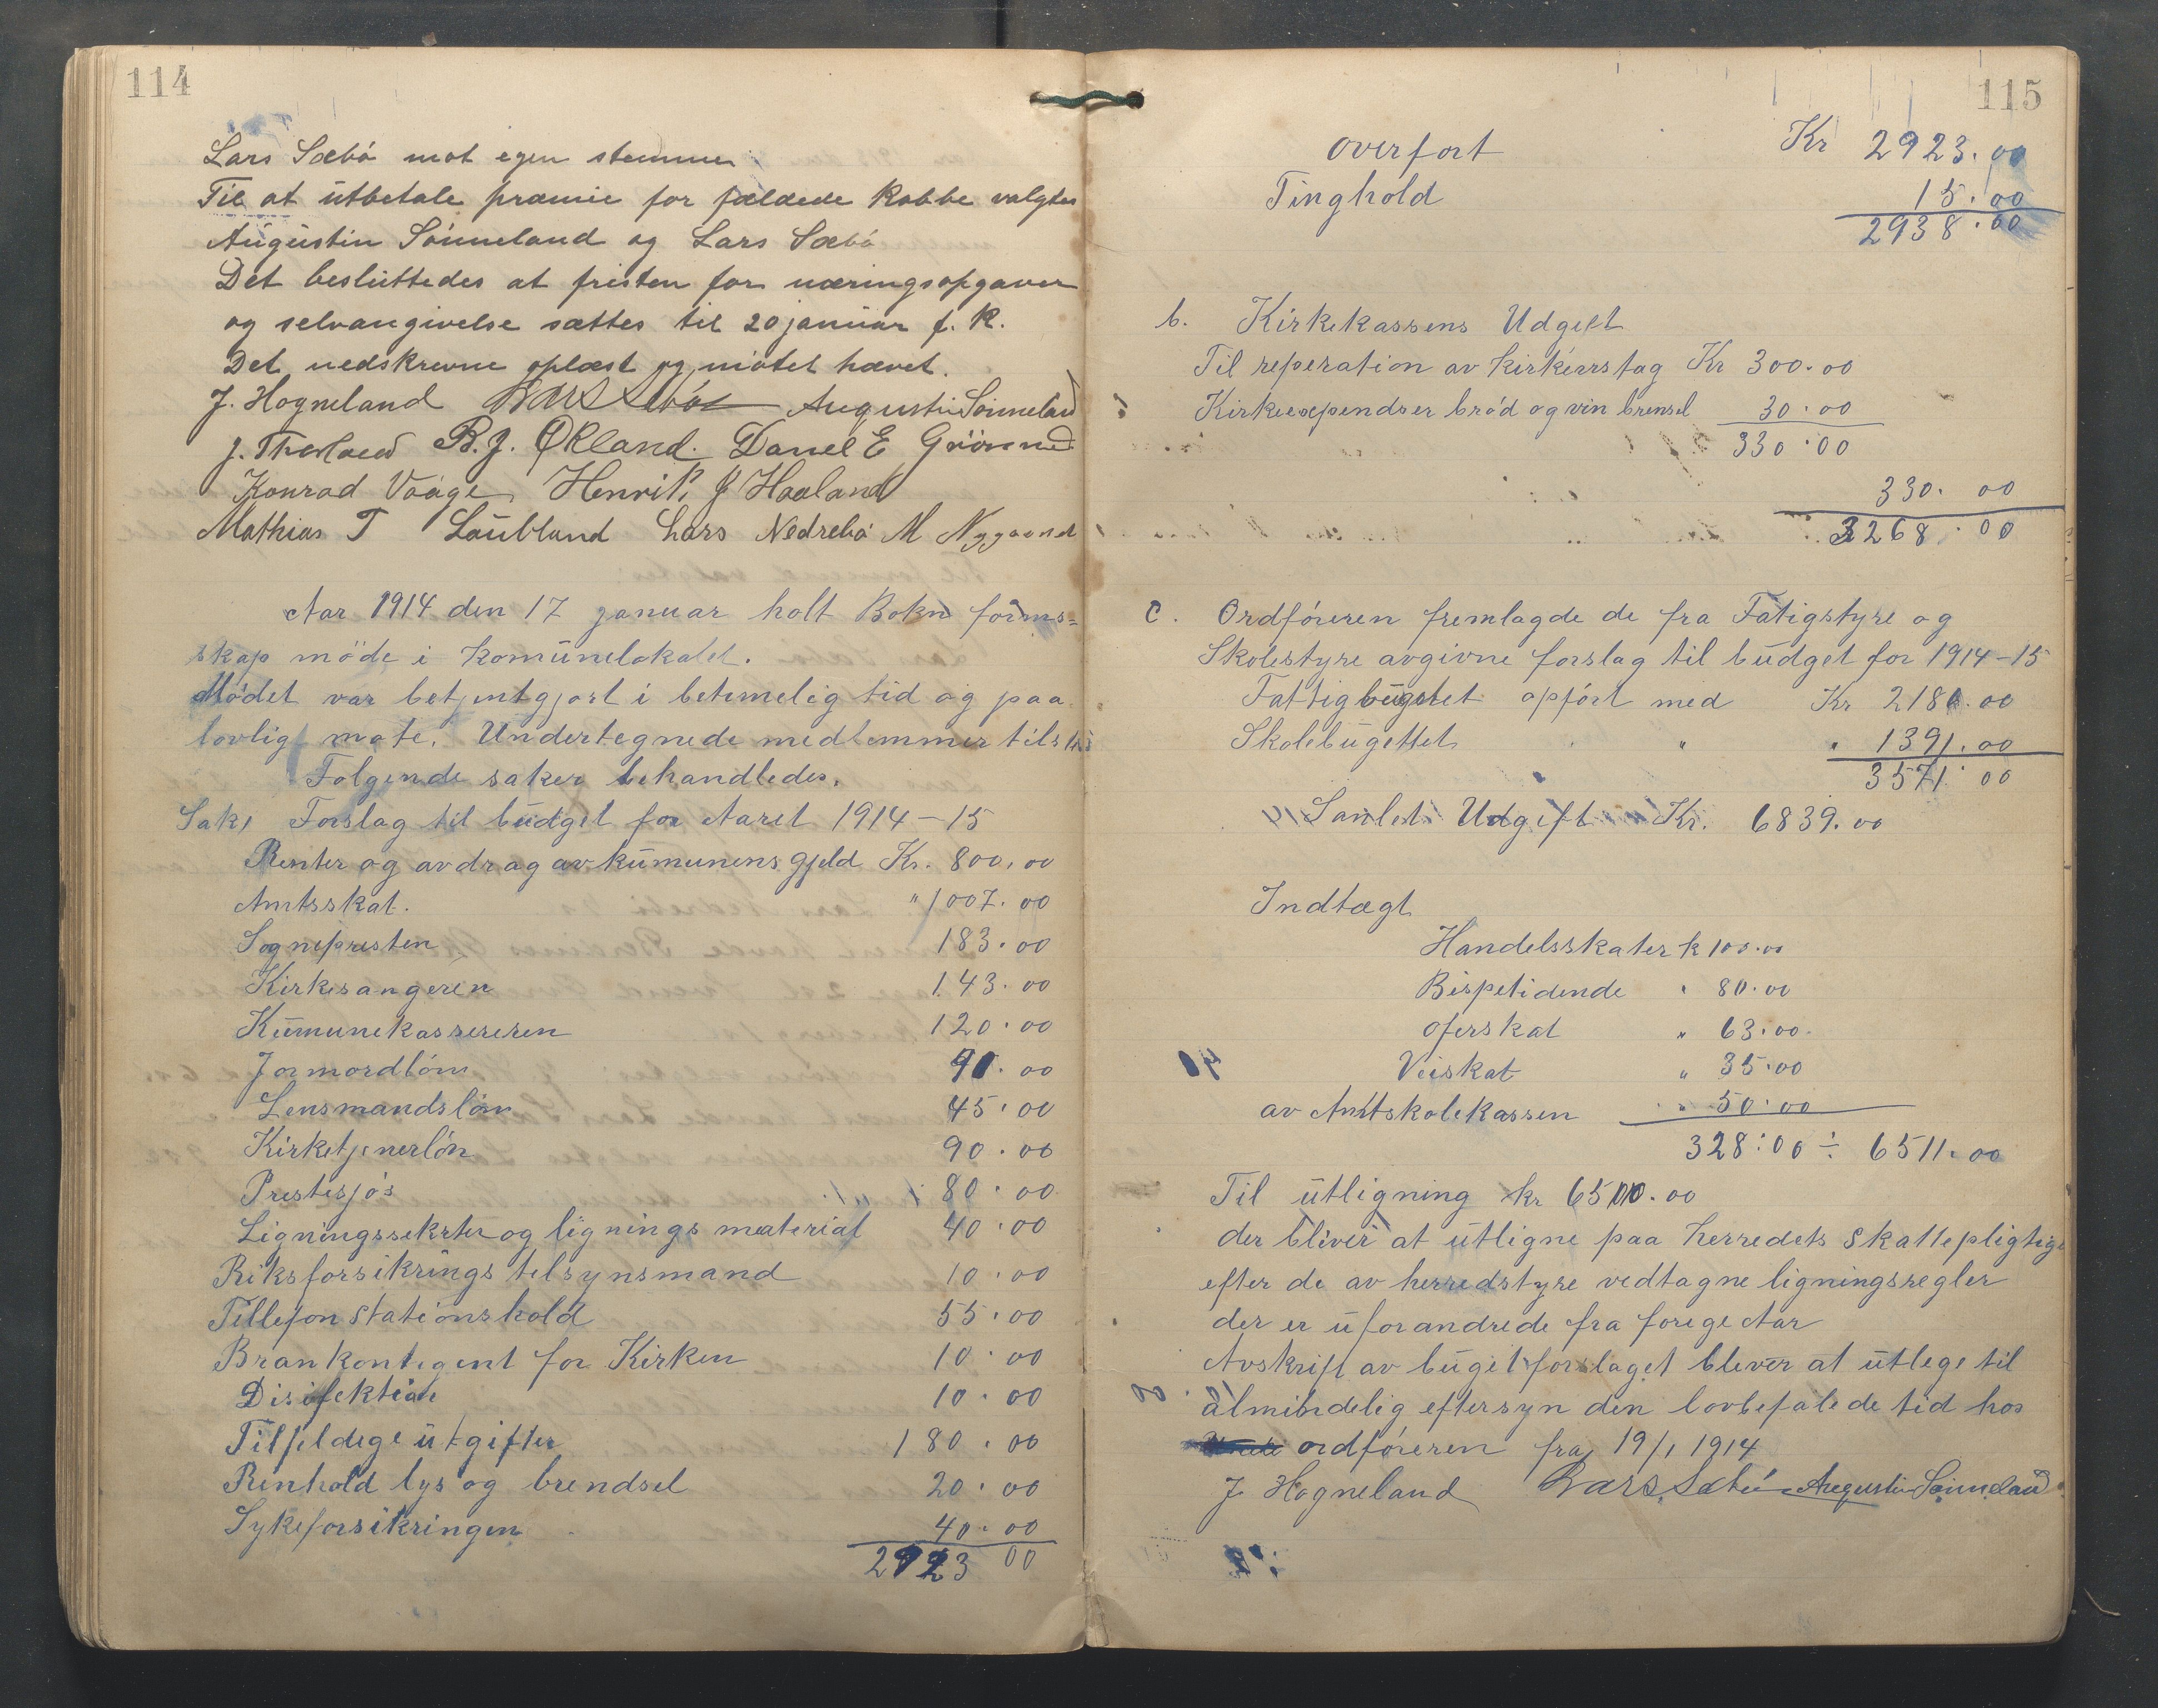 114
Lars Sæbö mot egen stemme
Til at ütbetale præmie for fældede Kobbe valgtes
Augüstin Sönneland og Lars Sæbö
Det beslüttedes at fristen for næringsopgaver
og selvangivelse sættes til 20 januar f. K.
Det nedskrevne oplæst og mötet hævet.
J. Hogneland Lars Sebö Augustin Sönneland
J. B. J. Økland. Danel E Grönnes
Konrad Vaage, Henrik J Haaland
Mathias T Laübland Lars Nedrebö M Nygaard
Aar 1914 den 17 januar holt Bokn forms=
skap möde i Komünelokalet.
Mödet var betjentgjort i betimelig tid og paa
lovlig mote. Undertegnede medlemmer tilsted
Folgende saker behandledes.
Sak 1 Forslag til büdget for Aaret 1914 – 15
Renter og avdrag av kümunens gjeld Kr. 800.00
Amtsskat. " 1007.00
Sognepresten 183.00
Kirkesangeren 143.00
Kümunekassereren 120.00
Jormordlön 90.00
Lensmandslön 45.00
Kirketjenerlön 90.00
Prestesjös 80.00
Ligningssekrter og lignings material 40.00
Riksforsikrings telsynsmand 10.00
Tellefon stationshold 55.00
Brankontigent for Kirken 10.00
Disifektion 10.00
Tilfeldige ütgifter 180.00
Renhold lys og brendsel 20.00
Sykeforsikringen 40.00
2923 00
115
overfort Kr 2923.00
Tinghold 15.00
2938.00
b. Kirkekassens Udgeft
Til reperation av kirkens tag Kr 300.00
Kirkeexpendser bröd og vin brensel 30.00
330.00
330.00
3268.00
c. Ordföreren fremlagde de fra Fatigstyre og
Skolestyre avgivne forslag til büdget for 1914–15
Fattigbügettet opfört med Kr 2180.00
Skolebügettet " " 1391.00
3571.00
Samlet Udgift Kr. 6839.00
Indtægt
Handelsskater k 100.00
Bispetidende " 80.00
Oferskat " 63.00
Veiskat " 35.00
av Amtskolekassen " 50.00
328:00 ÷ 6511.00
Til ütligning kr 6500.00
der bliver at ütligne paa herredets skattepligtige
efter de av herredstyre vedtagne ligningsregler
der er üforandrede fra forige Aar
Avskrift av bügetforslaget blever at ütlege til
almindelig eftersyn den lovbefalede tid hos
ordföreren fra 19/1 1914
J Hogneland Lars Sæbö Augustin Sönneland